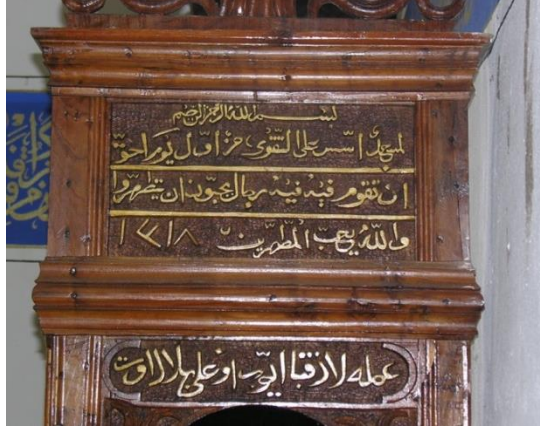 بسم الله الرحمن الرحيم
لمسجد اسس على التقوى من أول يوم احق
ان تقوم فيه فيه رجال يحبون ان يتطهروا
والله يحب المطهرين
عمله لازقا ايوب اوغلى بلال